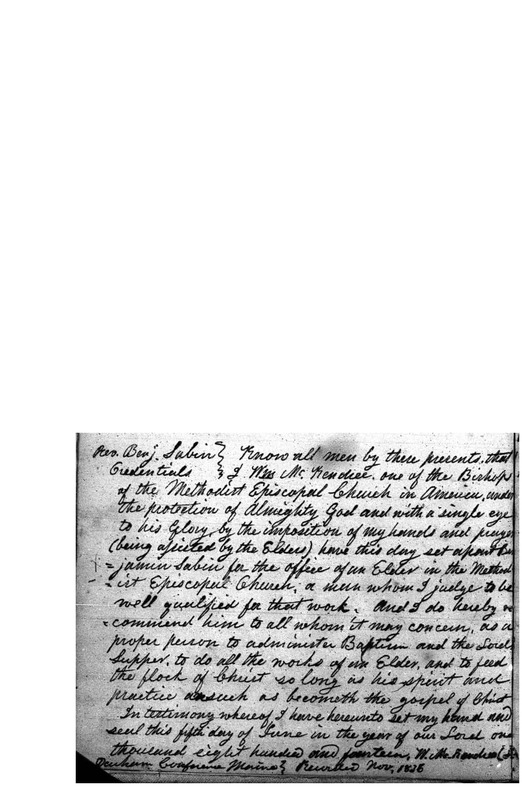 Rev. Benj. Sabin } Know all men by these presents, that
Credentials } I Wm Mc. Kendree. one of the Bishops
of the Methodist Episcopal Church in America, under
the protection of Almighty God and with a single eye
to his Glory, by the imposition of my hands and prayer
(being assisted by the Elders) have this day set apart Ben
=jamin Sabin for the office of an Elder in the Method
=ist Episcopal Church; a man whom I judge to be
well qualified for that work. And I do hereby re
=commend him to all whom it may concern, as a
proper person to administer Baptism and the Lord
Supper, to do all the works of an Elder, and to feed
the flock of Christ so long as his spirit and
practice such as becometh the gospel of Christ
In testimony whereof I have hereunto set my hand and
seal this fifth day of June in the year of our Lord one
thousand eight hundred and fourteen, W. Mc. Kendree
Recorded Nov, 1836